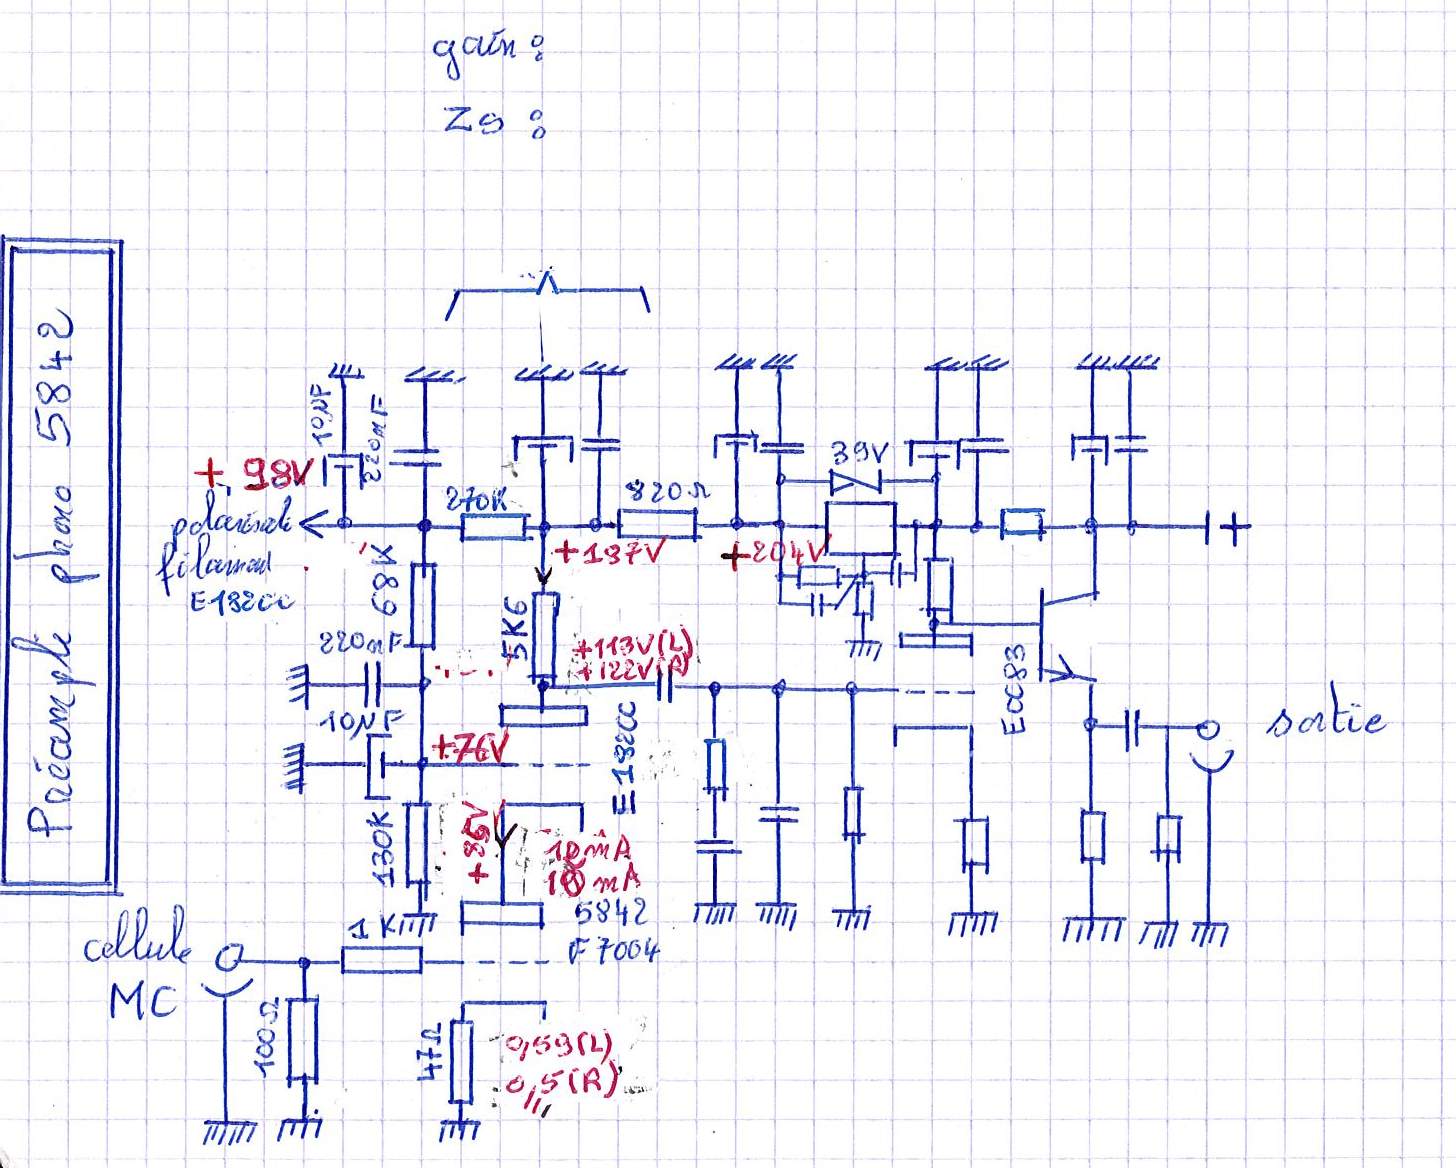 gain :
Zs :
Préampli phono 5842
10µF
220nF
+ 98V
39V
270K
820Ω
polarisat
filament
E182CC
+197V
+204V
68K
5K6
220nF
+113V(L)
+122V(R)
10µF
E182CC
ECC83
sortie
+76V
130K
+85V
10mA
10mA
1K
5842
F7004
cellule
MC
100Ω
47Ω
0,59(L)
0,5(R)